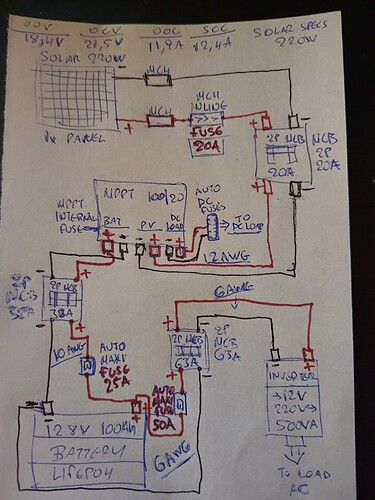 OOV OCV OOC SCC SOLAR SPECS
18,4V 21,5V 11,9A 12,4A 220W
SOLAR 220W
MCH
MCH
MCH
INLINE
>>>
FUSE
20A
1x PANEL
2P MCB
20A
MCB
2P
20A
MPPT 100/20
MPPT
INTERNAL
FUSE
BAT PV DC
LOAD
AUTO
DC
FUSES
→ TO
DC LOAD
12AWG
2P
MCB
32A
2P MCB
32A
10 AWG
AUTO
MAXI
FUSE
25A
6AWG
2P MCB
63A
2P
MCB
63A
AUTO
MAXI
FUSE
50A
6AWG
INVERTER
→12V
220V→
500VA
TO LOAD
AC
12.8V 100Ah
BATTERY
LiFePO4